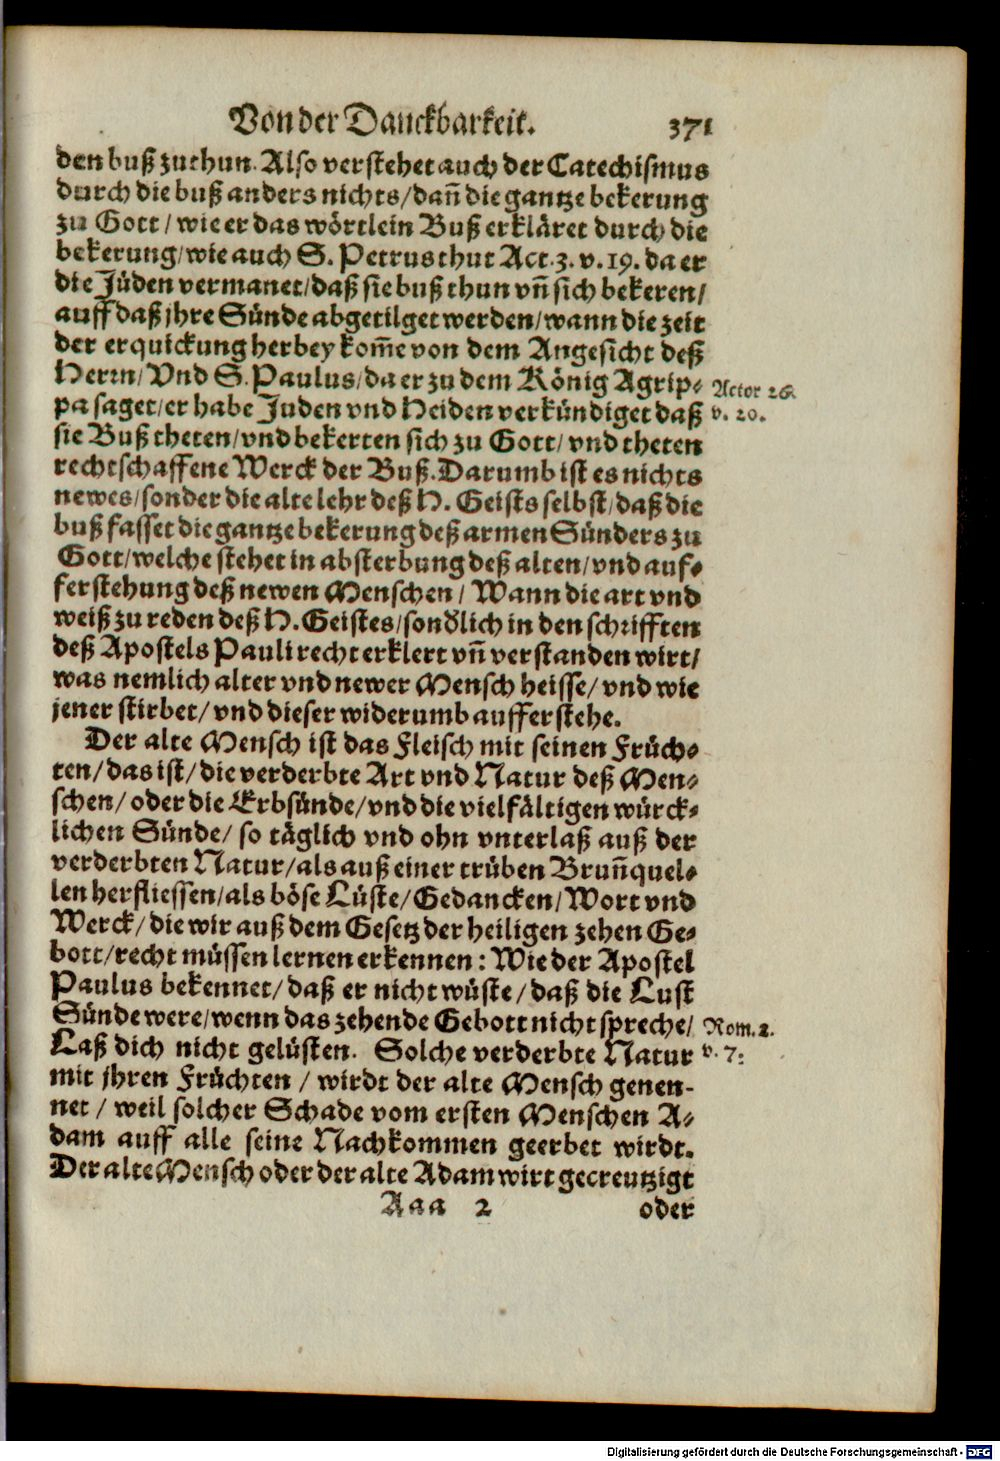 Von der Danckbarkeit. 371
den buß zuthun. Also verstehet auch der Catechismus
durch die buß anders nichts/ dañ die gantze bekerung
zu Gott/ wie er das wörtlein Buß erkläret durch die
bekerung/ wie auch S. Petrus thut Act. 3. v. 19. da er
die Jüden vermanet/ daß sie buß thun vñ sich bekeren/
auff daß jhre Sünde abgetilget werden/ wann die zeit
der erquickung herbey kom̃e von dem Angesicht deß
Herrn/ Vnd S. Paulus/ da er zu dem König Agrip-
Actor 26.
pa saget/ er habe Juden vnd Heiden verkündiget daß
v. 20.
sie Buß theten/ vnd bekerten sich zu Gott/ vnd theten
rechtschaffene Werck der Buß. Darumb ist es nichts
newes/ sonder die alte lehr deß H. Geists selbst/ daß die
buß fasset die gantze bekerung deß armen Sünders zu
Gott/ welche stehet in absterbung deß alten/ vnd auf-
ferstehung deß newen Menschen/ Wann die art vnd
weiß zu reden deß H. Geistes/ sonðlich in den schrifften
deß Apostels Pauli recht erklert vñ verstanden wirt/
was nemlich alter vnd newer Mensch heisse/ vnd wie
jener stirbet/ vnd dieser widerumb aufferstehe.
Der alte Mensch ist das Fleisch mit seinen Früch-
ten/ das ist/ die verderbte Art vnd Natur deß Men-
schen/ oder die Erbsünde/ vnd die vielfältigen würck-
lichen Sünde/ so täglich vnd ohn vnterlaß auß der
verderbten Natur/ als auß einer trüben Brun̄quel-
len herfliessen/ als böse Lüste/ Gedancken/ Wort vnd
Werck/ die wir auß dem Gesetz der heiligen zehen Ge-
bott/ recht müssen lernen erkennen: Wie der Apostel
Paulus bekennet/ daß er nicht wüste/ daß die Lust
Sünde were/ wenn das zehende Gebott nicht spreche/
Rom. 2.
Laß dich nicht gelüsten. Solche verderbte Natur
v. 7:
mit jhren Früchten / wirdt der alte Mensch genen-
net / weil solcher Schade vom ersten Menschen A-
dam auff alle seine Nachkommen geerbet wirdt.
Der alte Mensch oder der alte Adam wirt gecreutzigt
Aaa 2 oder
Digitalisierung gefördert durch die Deutsche Forschungsgemeinschaft - DFG